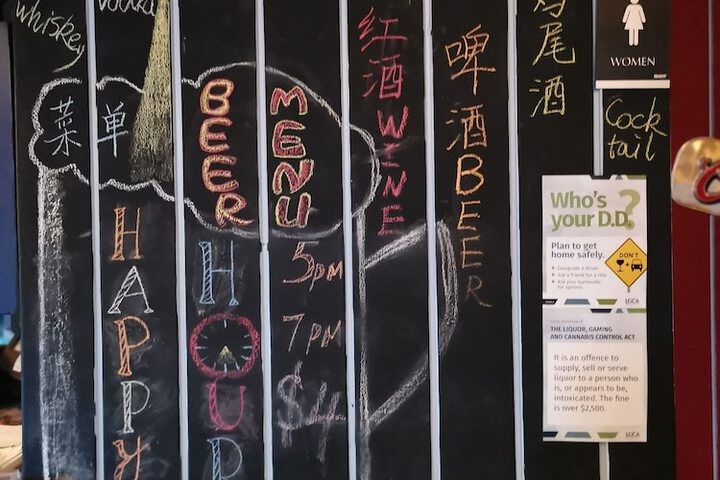 whiskey
vodka
菜单
BEER
MENU
HAPPY
HOUR
5pm
7pm
$4
红酒WINE
啤酒BEER
鸡尾酒
Cock
tail
WOMEN
Who's
your D.D?
Plan to get
home safely.
Designate a driver
Ask a friend for a ride
Ask your bartender
for options
DON'T
LGCA
THE LIQUOR, GAMING
AND CANNABIS CONTROL ACT
It is an offence to
supply, sell or serve
liquor to a person who
is, or appears to be,
intoxicated. The fine
is over $2,500.
LGCA